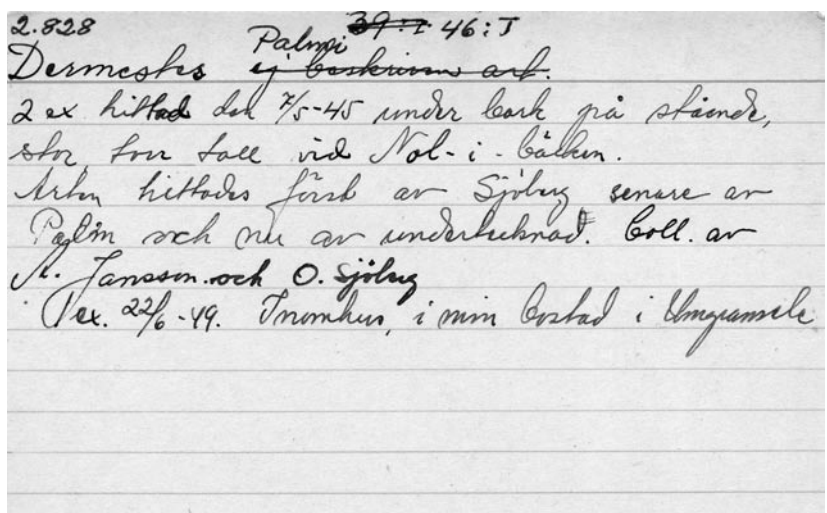 2.828 39:I 46:I
Dermestes Palmi ej beskriven art.
2 ex. hittad den 7/5-45 under bark på stående,
stor, torr tall vid Nol-i-bäcken.
Arten hittades först av Sjöberg senare av
Palm och nu av undertecknad. Coll. av
A. Jansson och O. Sjöberg
1 ex. 22/6-49. Inomhus, i min bostad i Umgransele